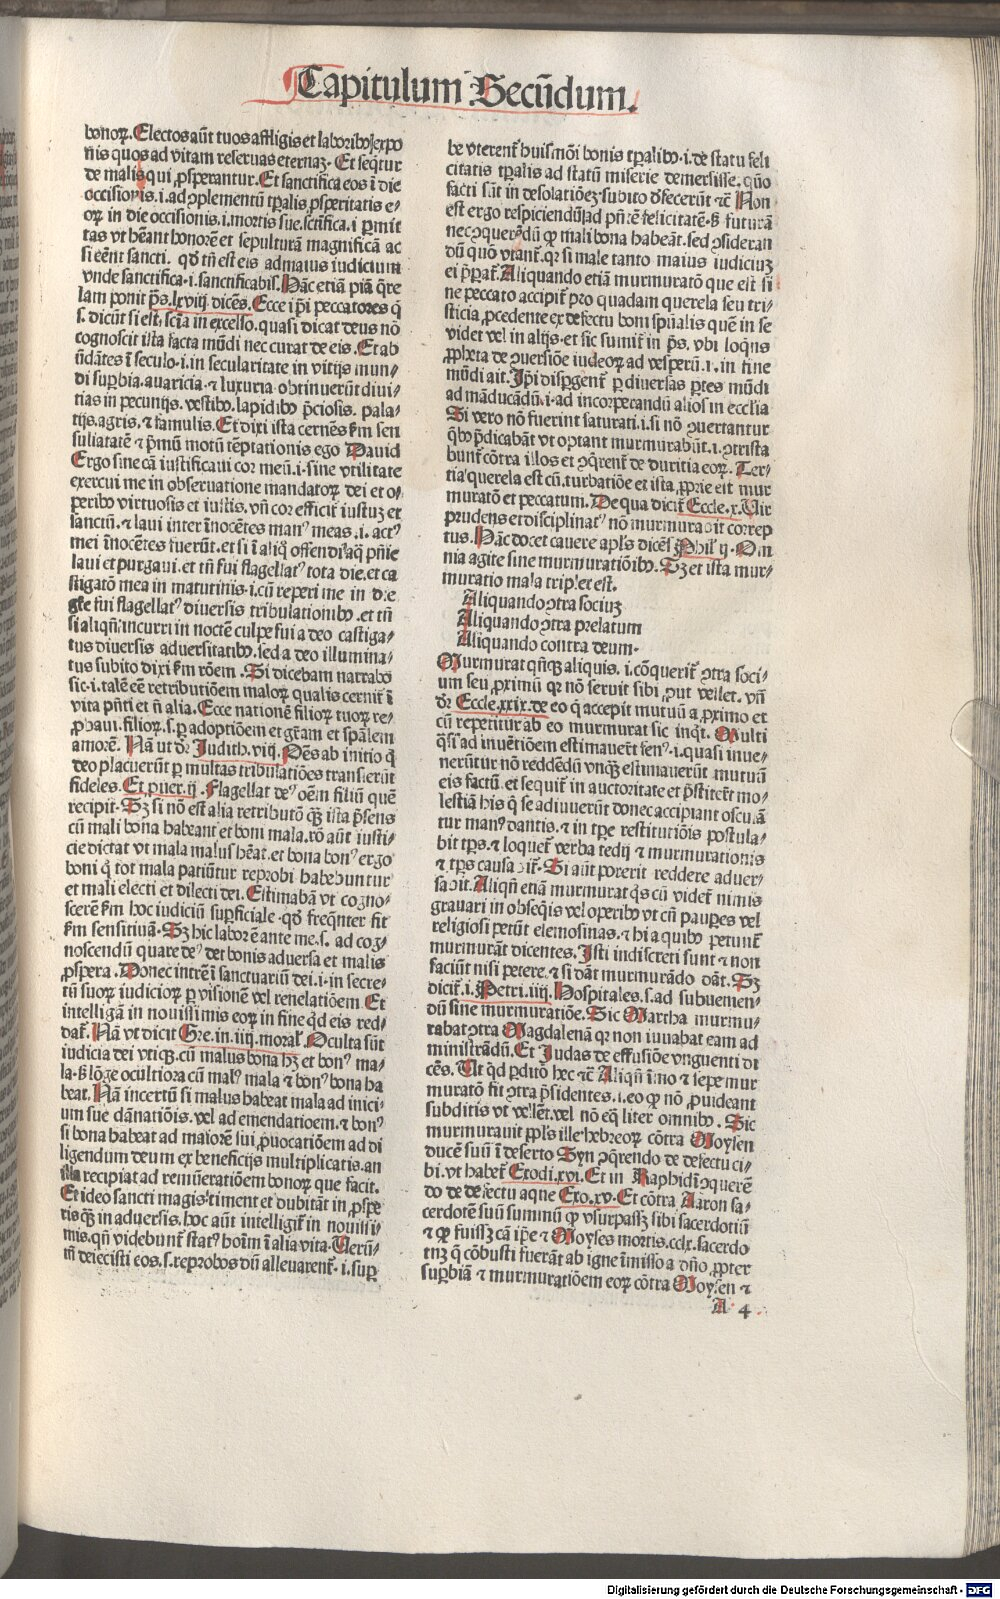 Capitulum Secūdum.
bonoꝝ. Electos aūt tuos affligis et laboribꝰ expo
nis quos ad vitam reseruas eternaꝫ. Et seqtur
de malis qui ꝓsperantur. Et sanctifica eos ī die
occisionis .i. ad ꝯplementū tꝑalis ꝓsperitatis e⸗
oꝝ in die occisionis .i. mortis sue. sctifica .i. ꝑmit
tas vt hēant honorē et sepulturā magnificā ac
si eēnt sancti. qd tn̄ est eis ad maius iudicium
vnde sanctifica .i. sanctificabis. Hāc etiā piā qre
lam ponit ps. lxviij. dicēs. Ecce ip̄i peccatores q̄
s. dicūt si est scīa in excelso. quasi dicat deus nō
cognoscit ista facta mūdi nec curat de eis. Et ab
ūdātes ī seculo .i. in secularitate in vitijs mun⸗
di suꝑbia. auaricia. ⁊ luxuria obtinuerūt diui⸗
tias in pecunijs. vestibꝰ. lapidibꝰ p̄ciosis. pala⸗
tijs. agris. ⁊ famulis. Et dixi ista cernēs ẜm sen
sualitatē ⁊ pmū motū tēptationis ego Dauid
Ergo sine cā iustificaui coꝛ meū .i. sine vtilitate
exercui me in obseruatione mandatoꝝ dei et o⸗
peribꝰ virtuosis et iustis. vn̄ coꝛ efficit iustuꝫ et
sanctū. ⁊ laui inter īnocētes manꝰ meas .i. actꝰ
mei īnocētes fuerūt. et si ī aliq̄ offendi aq̄ pn̄ie
laui et purgaui. et tn̄ fui flagellatꝰ tota die. et ca
stigatō mea in matutinis .i. cū reperi me in die
gr̄e fui flagellatꝰ diuersis tribulationibꝰ. et tn̄
si aliqn̄ incurri in noctē culpe fui a deo castiga⸗
tus diuersis aduersitatibꝰ. sed a deo illumina⸗
tus subito dixi ẜm rōem. Si dicebam narrabo
sic .i. talē eē retributiōem maloꝝ qualis cernit̄ ī
vita pn̄ti et n̄ alia. Ecce nationē filioꝝ tuoꝝ re⸗
ꝓbaui. filioꝝ .s. ꝑ adoptiōem et gr̄am et sp̄alem
amorē. Nā vt dr̄ Judith. viij. Oēs ab initio q̄
deo placuerūt ꝑ multas tribulatiōes transierūt
fideles. Et puer. iij. Flagellat deꝰ oēm filiū quē
recipit. Sꝫ si nō est alia retributō qꝫ ista p̄sens
cū mali bona habeant et boni mala. rō aūt iusti⸗
cie dictat vt mala malus hēat. et bona bonꝰ ergo
boni q̄ tot mala patiūtur reprobi habebuntur
et mali electi et dilecti dei. Estimabā vt cogno⸗
scerē ẜm hoc iudiciū suꝑficiale. qd freqnter fit
ẜm sensitiuā. Sꝫ hic labor ē ante me. s. ad cog⸗
noscendū quare deꝰ det bonis aduersa et malis
ꝓspera. Donec intrē ī sanctuariū dei .i. in secre⸗
tū suoꝝ iudicioꝝ ꝑ visionē vel reuelatiōem. Et
intelligā in nouissimis eoꝝ in fine qd eis red⸗
dat̄. Nā vt dicit Gre. in. iiij. moral̄. Occulta sūt
iudicia dei vtiqꝫ. cū malus bona hꝫ et bonꝰ ma⸗
la. ẜ lōge ocultiora cū malꝰ mala ⁊ bonꝰ bona ha
beat. Nā incertū si malus habeat mala ad inici⸗
um sue dānatiōis. vel ad emendatioem. ⁊ bonꝰ
si bona habeat ad maiorē sui ꝓuocatiōem ad di
ligendum deum ex beneficijs multiplicatis. an
illa recipiat ad remūeratiōem bonoꝝ que facit.
Et ideo sancti magis timent et dubitāt in ꝓspe
ris qꝫ in aduersis. hoc aūt intelligit̄ in nouissi⸗
mis. qn̄ videbunt̄ statꝰ hoīm ī alia vita. Uerū⸗
tn̄ deiecisti eos. s. reprobos dū alleuarent̄ .i. suꝑ
be vterent̄ huiꝰmōi bonis tꝑalibꝰ .i. de statu feli
citatis tꝑalis ad statū miserie demersisse. quō
facti sūt in desolatiōeꝫ subito defecerūt ⁊c̄ Non
est ergo respiciendū ad pn̄tē felicitatē. ẜ futurā
nec ꝯquerēdū ꝙ mali bona habeāt. sed ꝯsideran
dū quō vtant̄. qꝛ si male tanto maius iudiciuꝫ
ei p̄parat̄. Aliquando etiā murmuratō que est si
ne peccato accipit̄ pro quadam querela seu tri⸗
sticia ꝓcedente ex defectu boni spūalis quē in se
videt vel in alijs. et sic sumit̄ in ps. vbi loqns
ꝓpheta de ꝯuersiōe iudeoꝝ ad vesperū .i. in fine
mūdi ait. Ip̄i dispergent̄ ꝑ diuersas ꝑtes mūdi
ad māducādū .i. ad incorperandū alios in ecclīa
Si vero nō fuerint saturati .i. si nō ꝯuertantur
qbꝰ p̄dicabāt vt optant murmurabūt .i. ꝯtrista
bunt̄ cōtra illos et ꝯqrent̄ de duritia eoꝝ. Ter⸗
tia querela est cū. turbatiōe et ista ꝓprie est mur
muratō et peccatum. De qua dicit̄ Eccle. x. Uir
prudens et disciplinatꝰ nō murmurabit correp
tus. Hāc docet cauere apl̄s dicēs Phil̄. ij. Om
nia agite sine murmuratiōibꝰ. Sꝫ et ista mur⸗
muratio mala triplex est.
Aliquando ꝯtra sociuꝫ
Aliquando ꝯtra prelatum
Aliquando contra deum.
Murmurat qn̄qꝫ aliquis .i. cōquerit̄ ꝯtra soci⸗
um seu ꝓximū qꝛ nō seruit sibi ꝓut vellet. vn̄
dr̄ Eccle. xxix. de eo q̄ accepit mutuū a ꝓximo et
cū repetitur ab eo murmurat sic inqt̄. Multi
q̄si ad inuētiōem estimauerūt fenꝰ .i. quasi inue⸗
nerūt ur nō reddēdū vnqꝫ estimauerūt mutuū
eis factū. et sequit̄ in auctoritate et p̄stiterūt mo⸗
lestiā his q̄ se adiuuerūt donec accipiant osculā
tur manꝰ dantis. ⁊ in tꝑe restitutiōis postula⸗
bit tp̄s. ⁊ loquet̄ verba tedij ⁊ murmurationis
⁊ tp̄s causabit̄. Si aūt poterit reddere aduer⸗
sabit̄. Aliqn̄ etiā murmurat qs cū videt̄ nimis
grauari in obseqis vel operibꝰ vt cū pauꝑes vel
religiosi petūt elemosinas. ⁊ hi a quibꝰ petunt̄
murmurāt dicentes. Isti indiscreti sunt ⁊ non
faciūt nisi petere. ⁊ si dāt murmurādo dāt. Sꝫ
dicit̄ .i. Petri. iiij. Hospitales. s. ad subuenien⸗
dū sine murmuratiōe. Sic Martha murmu⸗
rabat ꝯtra Magdalenā qꝛ non iuuabat eam ad
ministrādū. Et Judas de effusiōe vnguenti di
cēs. Ut qd ꝑditō hec ⁊c̄ Aliqn̄ īmo ⁊ sepe mur
muratō fit ꝯtra p̄sidentes .i. eo ꝙ nō ꝓuideant
subditis vt vellēt. vel nō eqliter omnibꝰ. Sic
murmurauit ppl̄s ille hebreoꝝ cōtra Moysen
ducē suū ī deserto Syn ꝯqrendo de defectu ci⸗
bi. vt habet̄ Exodi. xvi. Et in Raphidī ꝯquerē
do de defectu aque Exo. xv. Et cōtra Aaron sa⸗
cerdotē suū summū ꝙ vsurpassꝫ sibi sacerdotiū
⁊ ꝙ fuissꝫ cā ip̄e ⁊ Moyses mortis. cclx. sacerdo
tuꝫ q̄ cōbusti fuerāt ab igne īmisso a dn̄o ꝓpter
suꝑbiā ⁊ murmuratiōem eoꝝ cōtra Moysen ⁊
A 4
Digitalisierung gefördert durch die Deutsche Forschungsgemeinschaft - DFG